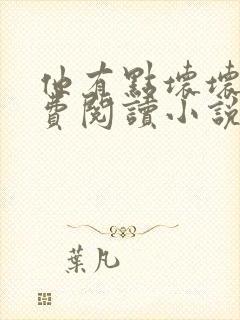 他有點壞壞
費閱讀小說
葉凡